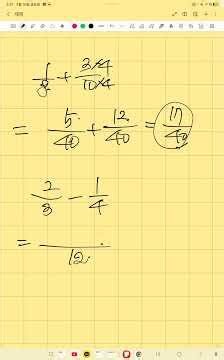 1/8 + 3×4/10×4
= 5/40 + 12/40 = 17/40
2/3 - 1/4
= /12